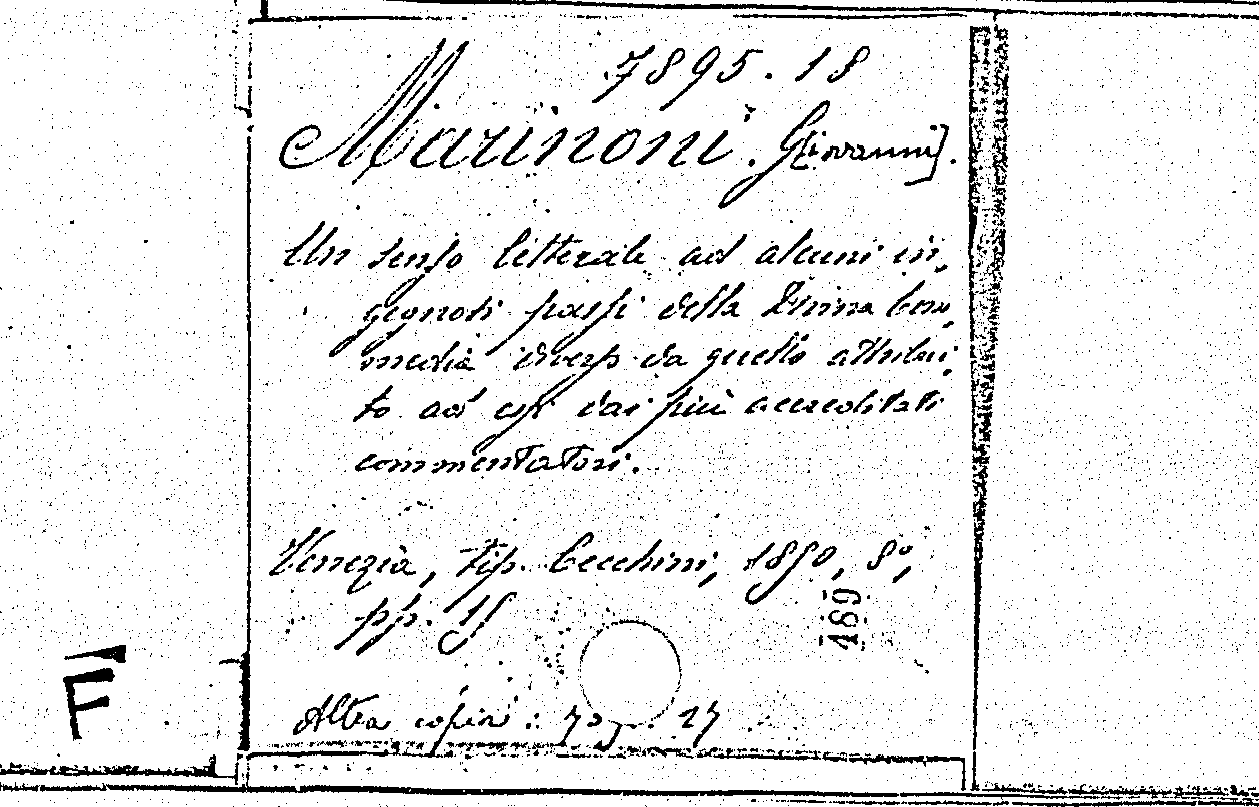 7895.18
Marinoni. G[iovanni].
Un senso letterale ad alcuni in-
gegnosi passi della Divina Com-
media diverso da quello attribui-
to ad essi dai più accreditati
commentatori.
Venezia, tip. Cecchini, 18 0, 8°,
pp. 15
469
F
Altra copia: 27